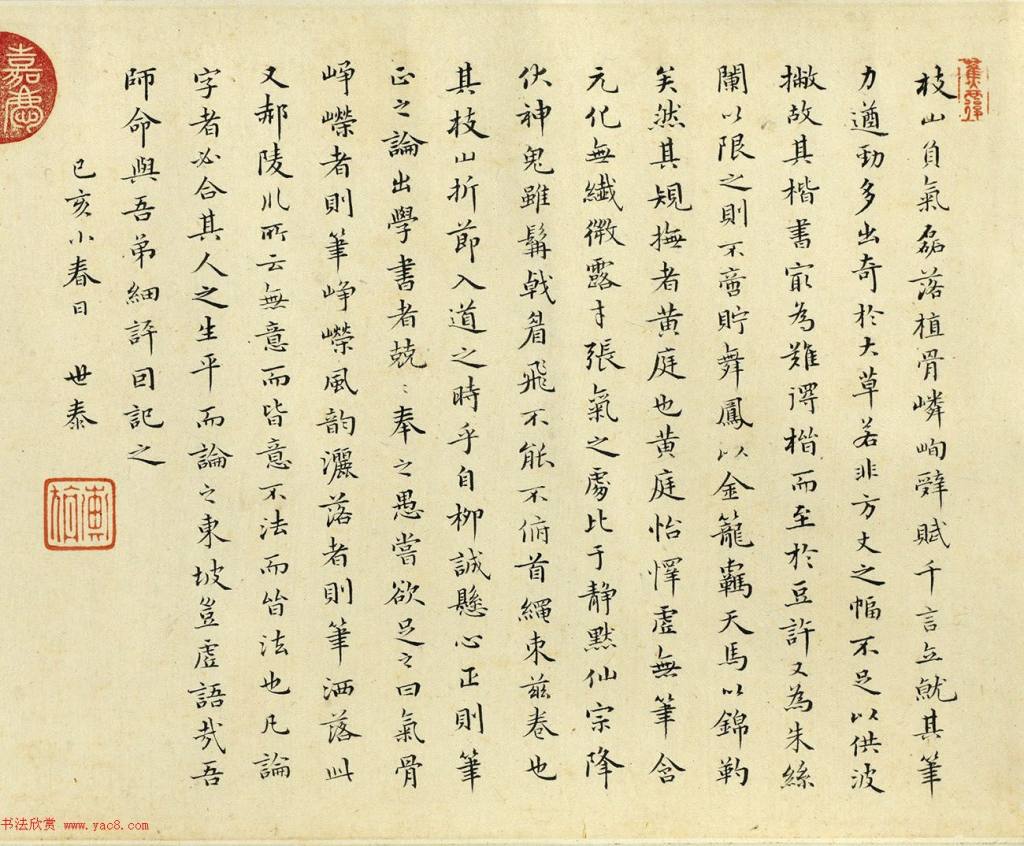 枝山負氣磊落植骨嶙峋辭賦千言立就其筆
力遒勁多出奇於大草若非方丈之幅不足以供波
撇故其楷書寂為難得楷而至於豆許又為朱絲
闌以限之則不啻貯舞鳳以金籠羈天馬以錦勒
矣然其規撫者黃庭也黃庭怡懌虛無筆含
元化無纖微露才張氣之處比于静黙仙宗降
伏神鬼雖髯戟眉飛不能不俯首繩束茲卷也
其枝山折節入道之時乎自柳誠懸心正則筆
正之論出學書者兢〻奉之愚嘗欲足之曰氣骨
崢嶸者則筆崢嶸風韵灑落者則筆洒落此
又郝陵川所云無意而皆意不法而皆法也凡論
字者必合其人之生平而論之東坡豈虛語哉吾
師命與吾弟細評因記之
己亥小春日 世泰
嘉慶
書法欣赏 www.yac8.com